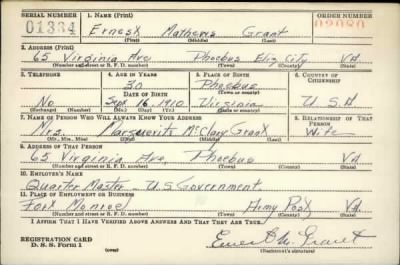 SERIAL NUMBER 1. NAME (Print) ORDER NUMBER
01334 Ernest Mathews Grant
(First) (Middle) (Last)
2. ADDRESS (Print)
65 Virginia Ave Phoebus Eliz City VA.
(Number and street or R. F. D. number) (Town) (County) (State)
3. TELEPHONE 4. AGE IN YEARS 5. PLACE OF BIRTH 6. COUNTRY OF CITIZENSHIP
30 Phoebus
DATE OF BIRTH (Town or county)
No Sept 16, 1910 Virginia U.S.A
(Mo.) (Day) (Yr.) (State or country)
7. NAME OF PERSON WHO WILL ALWAYS KNOW YOUR ADDRESS 8. RELATIONSHIP OF THAT PERSON
Mrs. Marguerite McClary Grant Wife
(Mr., Mrs., Miss) (First) (Middle) (Last)
9. ADDRESS OF THAT PERSON
65 Virginia Ave, Phoebus VA.
(Number and street or R. F. D. number) (Town) (County) (State)
10. EMPLOYER'S NAME
Quarter Master - U.S. Government
11. PLACE OF EMPLOYMENT OR BUSINESS
Fort Monroe Army Post VA.
(Number and street or R. F. D. number) (Town) (County) (State)
I AFFIRM THAT I HAVE VERIFIED ABOVE ANSWERS AND THAT THEY ARE TRUE.
REGISTRATION CARD
D. S. S. Form 1 Ernest M. Grant
(Registrant's signature)